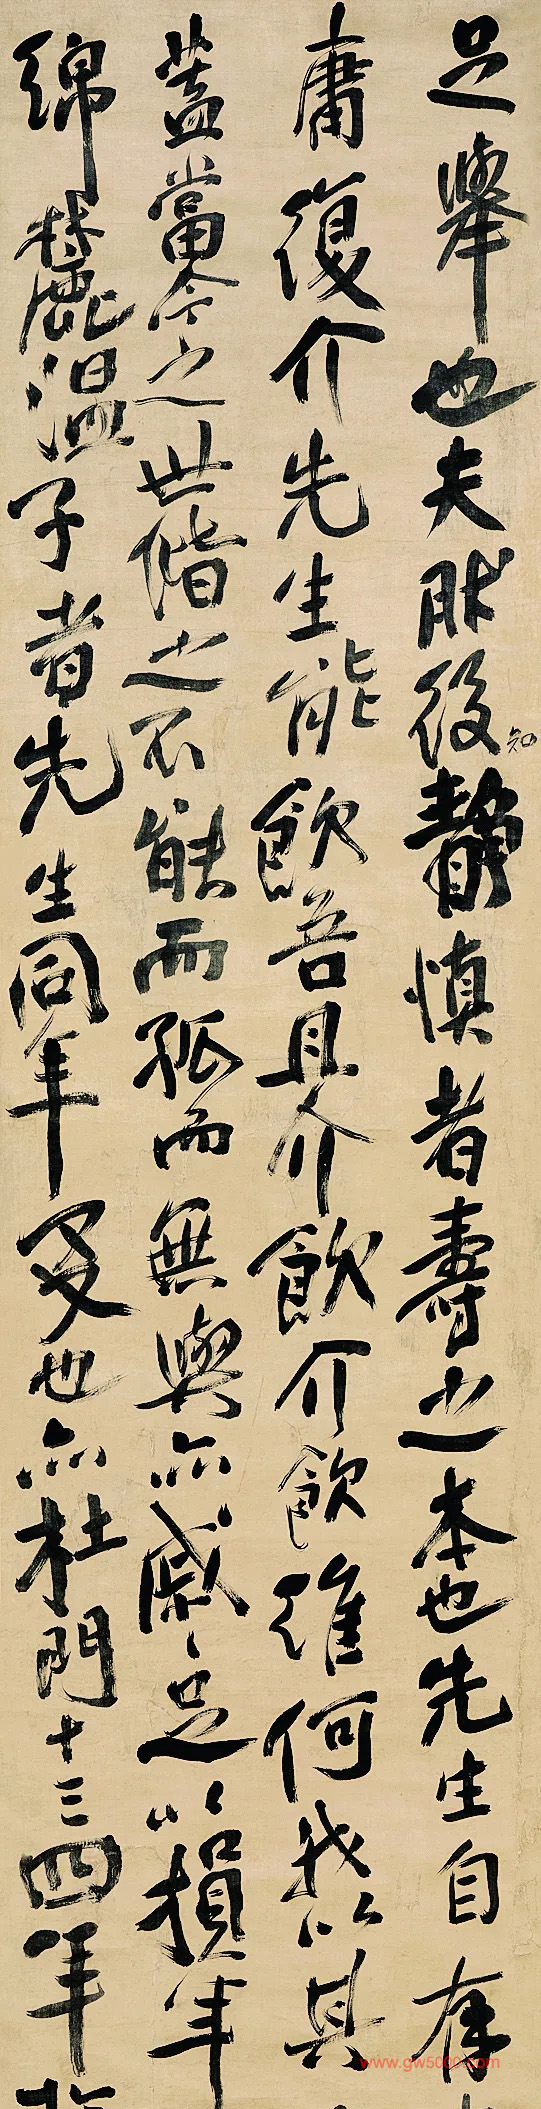 足舉也夫然後知靜慎者壽之本也先生自存
庸復介先生能飲吾且介飲介飲維何我以其
蓋當今之世偕之不能而孤而無與亦戚戚足以損年
綿麓溫子者先生同年友也亦杜門十三四年
www.gw5000.com